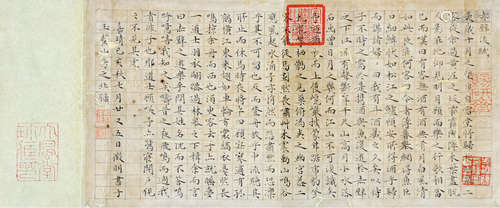 後赤壁賦
是歲十月之望步自雪堂將歸于臨皋二
客從予過黃泥之坂霜露既降木葉盡脫
人影在地仰見明月顧而樂之行歌相答
已而歎曰有客無酒有酒無肴月白風清
如此良夜何客曰今者薄暮舉網得魚巨
口細鱗狀如松江之鱸顧安所得酒乎歸
而謀諸婦婦曰我有斗酒藏之久矣以待
子不時之需於是攜酒與魚復遊於赤壁
之下江流有聲斷岸千尺山高月小水落
石出曾日月之幾何而江山不可復識矣
予乃攝衣而上履巉巖披蒙茸踞虎豹
登虬龍攀棲鶻之危巢俯馮夷之幽宮蓋二
客不能從焉劃然長嘯草木震動山鳴谷
應風起水涌予亦悄然而悲肅然而恐凜
乎其不可留也反而登舟放乎中流聽其
所止而休焉時夜將半四顧寂寥適有孤
鶴橫江東來翅如車輪玄裳縞衣戛然長
鳴掠予舟而西也須臾客去予亦就睡夢
一道士羽衣蹁躚過臨皋之下揖予而言
曰赤壁之遊樂乎問其姓名俛而不答嗚
呼噫嘻我知之矣疇昔之夜飛鳴而過我
者非子也耶道士顧笑予亦驚寤開戶視
之不見其處
嘉靖己亥秋七月廿又五日徵明書于
玉磬山房之北牖